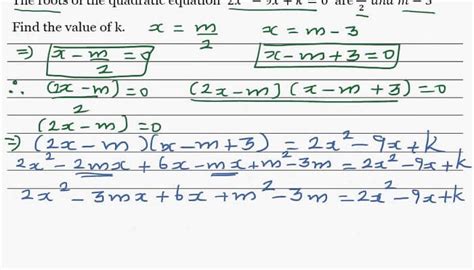 The roots of the quadratic equation 2x² − 9x + k = 0 are m/2 and m − 3
Find the value of k. x = m/2 x = m − 3
⇒) x − m/2 = 0 x − m + 3 = 0
∴ (2x − m)/2 = 0 (2x − m)(x − m + 3) = 0
(2x − m) = 0
⇒) (2x − m)(x − m + 3) = 2x² − 9x + k
2x² − 2mx + 6x − mx + m² − 3m = 2x² − 9x + k
2x² − 3mx + 6x + m² − 3m = 2x² − 9x + k